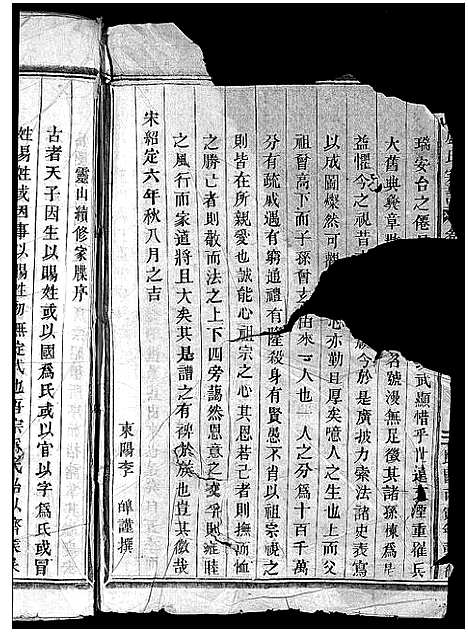 瑞安台之僊 武顯惜乎 遠 湮重罹兵
大舊典彝章 名號漫無足徵其諸孫楝爲
益懼今之視昔 視今於是廣披力索法諸史表寫
以成圖燦然可 心亦勤且厚矣噫人之生也上而父
祖曾高下而子孫曾玄 由來一人也一人之分爲十百千萬
分有疏戚遇有窮通禮有隆殺身有賢愚不肖以祖宗視之
則皆在所親愛也誠能心祖宗之心其恩若己者則撫而恤
之勝亡者則敬而法之上下四旁藹然恩意之變爭則雍睦
之風行而家道將且大矣其是譜之有裨於族也豈其微哉
宋紹定六年秋八月之吉
東陽李 謹撰
靈山續修家牒序
古者天子因生以賜姓或以國爲氏或以官以字爲氏或冒
姓易姓或因事以賜姓初無定式也吾宗 氏始以